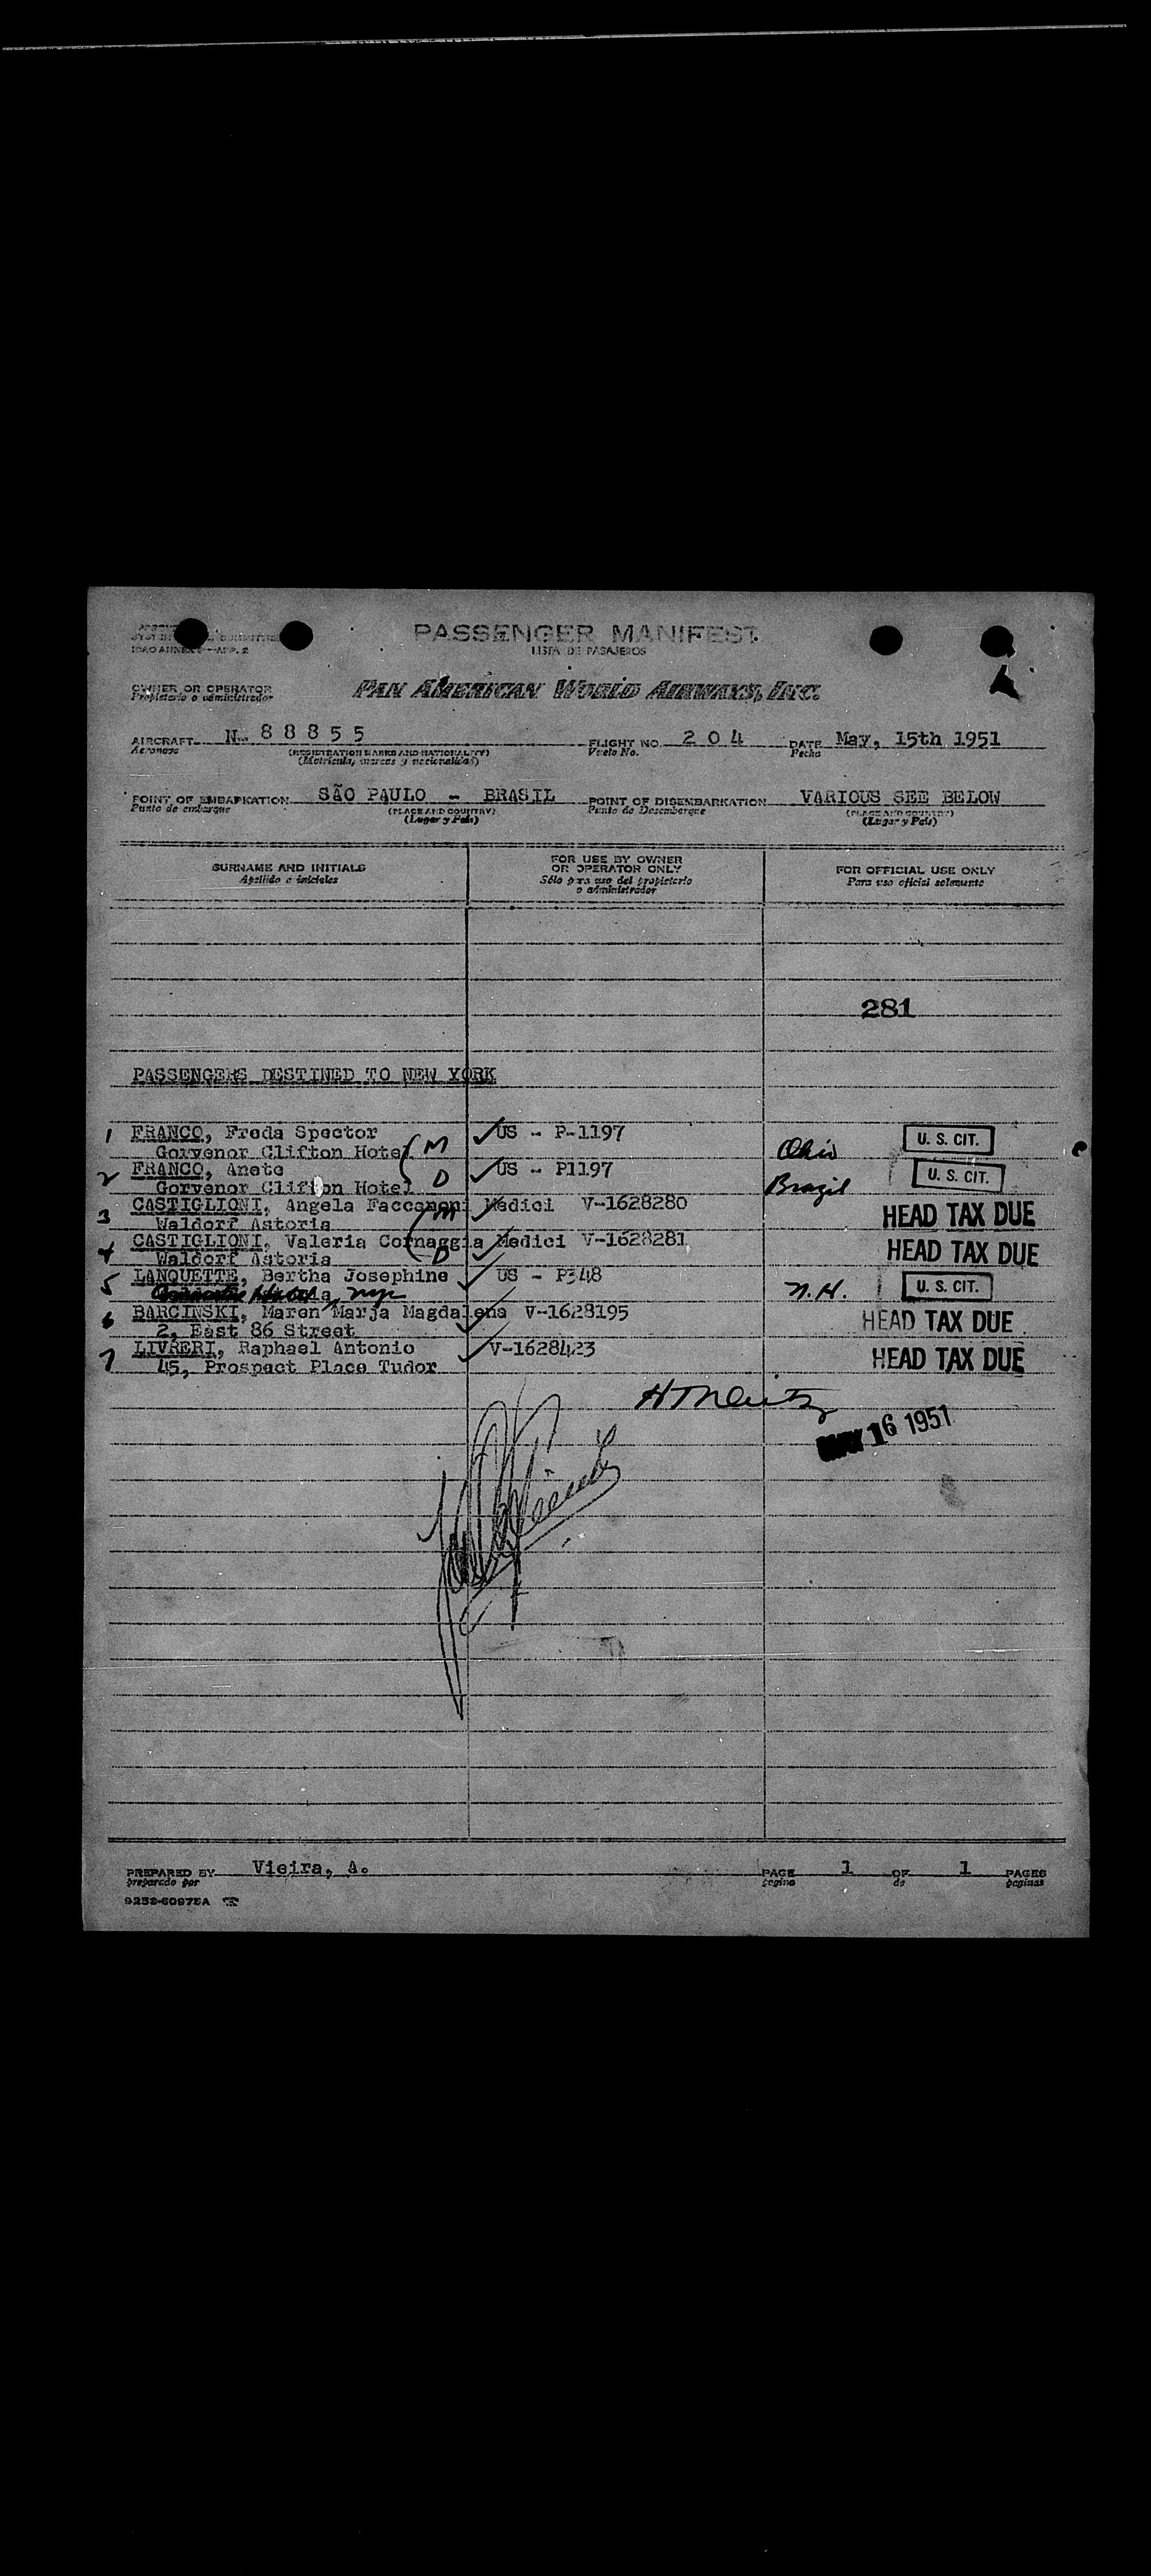 PASSENGER MANIFEST
LISTA DE PASAJEROS
ICAO ANNEX APP. 2
OWNER OR OPERATOR
Propietario o administrador
PAN AMERICAN WORLD AIRWAYS, INC.
AIRCRAFT N. 88855 FLIGHT NO. 204 DATE May, 15th 1951
Aeronave (REGISTRATION MARKS AND NATIONALITY) Vuelo No. Fecha
(Matrícula, marcas y nacionalidad)
POINT OF EMBARKATION SÃO PAULO - BRASIL POINT OF DISEMBARKATION VARIOUS SEE BELOW
Punto de embarque (PLACE AND COUNTRY) Punto de Desembarque (PLACE AND COUNTRY)
(Lugar y País) (Lugar y País)
SURNAME AND INITIALS FOR USE BY OWNER OR OPERATOR ONLY FOR OFFICIAL USE ONLY
Apellido e iniciales Sólo para uso del propietario o administrador Para uso oficial solamente
281
PASSENGERS DESTINED TO NEW YORK
1 FRANCO, Freda Spector M US - P-1197 Ohio U. S. CIT.
Gorvenor Clifton Hotel
2 FRANCO, Anete D US - P1197 Brazil U. S. CIT.
Gorvenor Clifton Hotel
3 CASTIGLIONI, Angela Faccanoni Medici M V-1628280 HEAD TAX DUE
Waldorf Astoria
4 CASTIGLIONI, Valeria Cornaggia Medici D V-1628281 HEAD TAX DUE
Waldorf Astoria
5 LANQUETTE, Bertha Josephine US - P348 N.H. U. S. CIT.
nyc
6 BARCINSKI, Maren Marja Magdalena V-1628195 HEAD TAX DUE
2, East 86 Street
7 LIVRERI, Raphael Antonio V-1628423 HEAD TAX DUE
45, Prospect Place Tudor
MAY 16 1951
PREPARED BY Vieira, A. PAGE 1 OF 1 PAGES
preparado por pagina de paginas